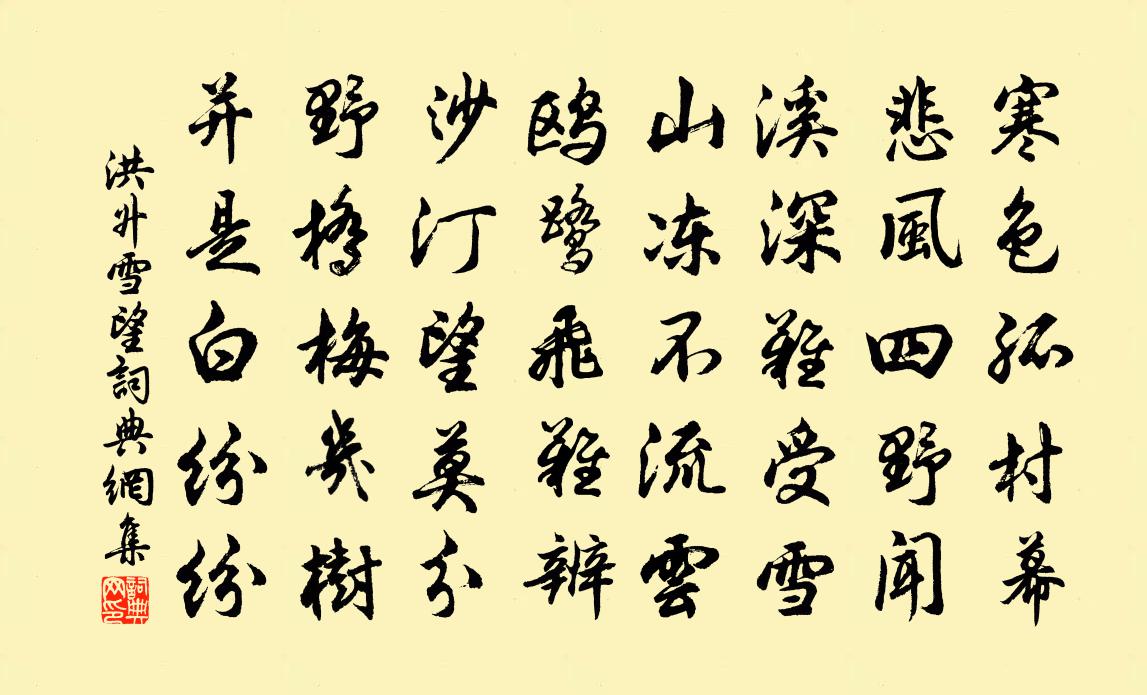 寒色孤村幕
悲風四野聞
溪深難受雪
山冻不流雲
鸥鷺飛難辨
沙汀望莫分
野橋梅幾樹
并是白紛紛
洪升雪望詞典網集
詞典网印